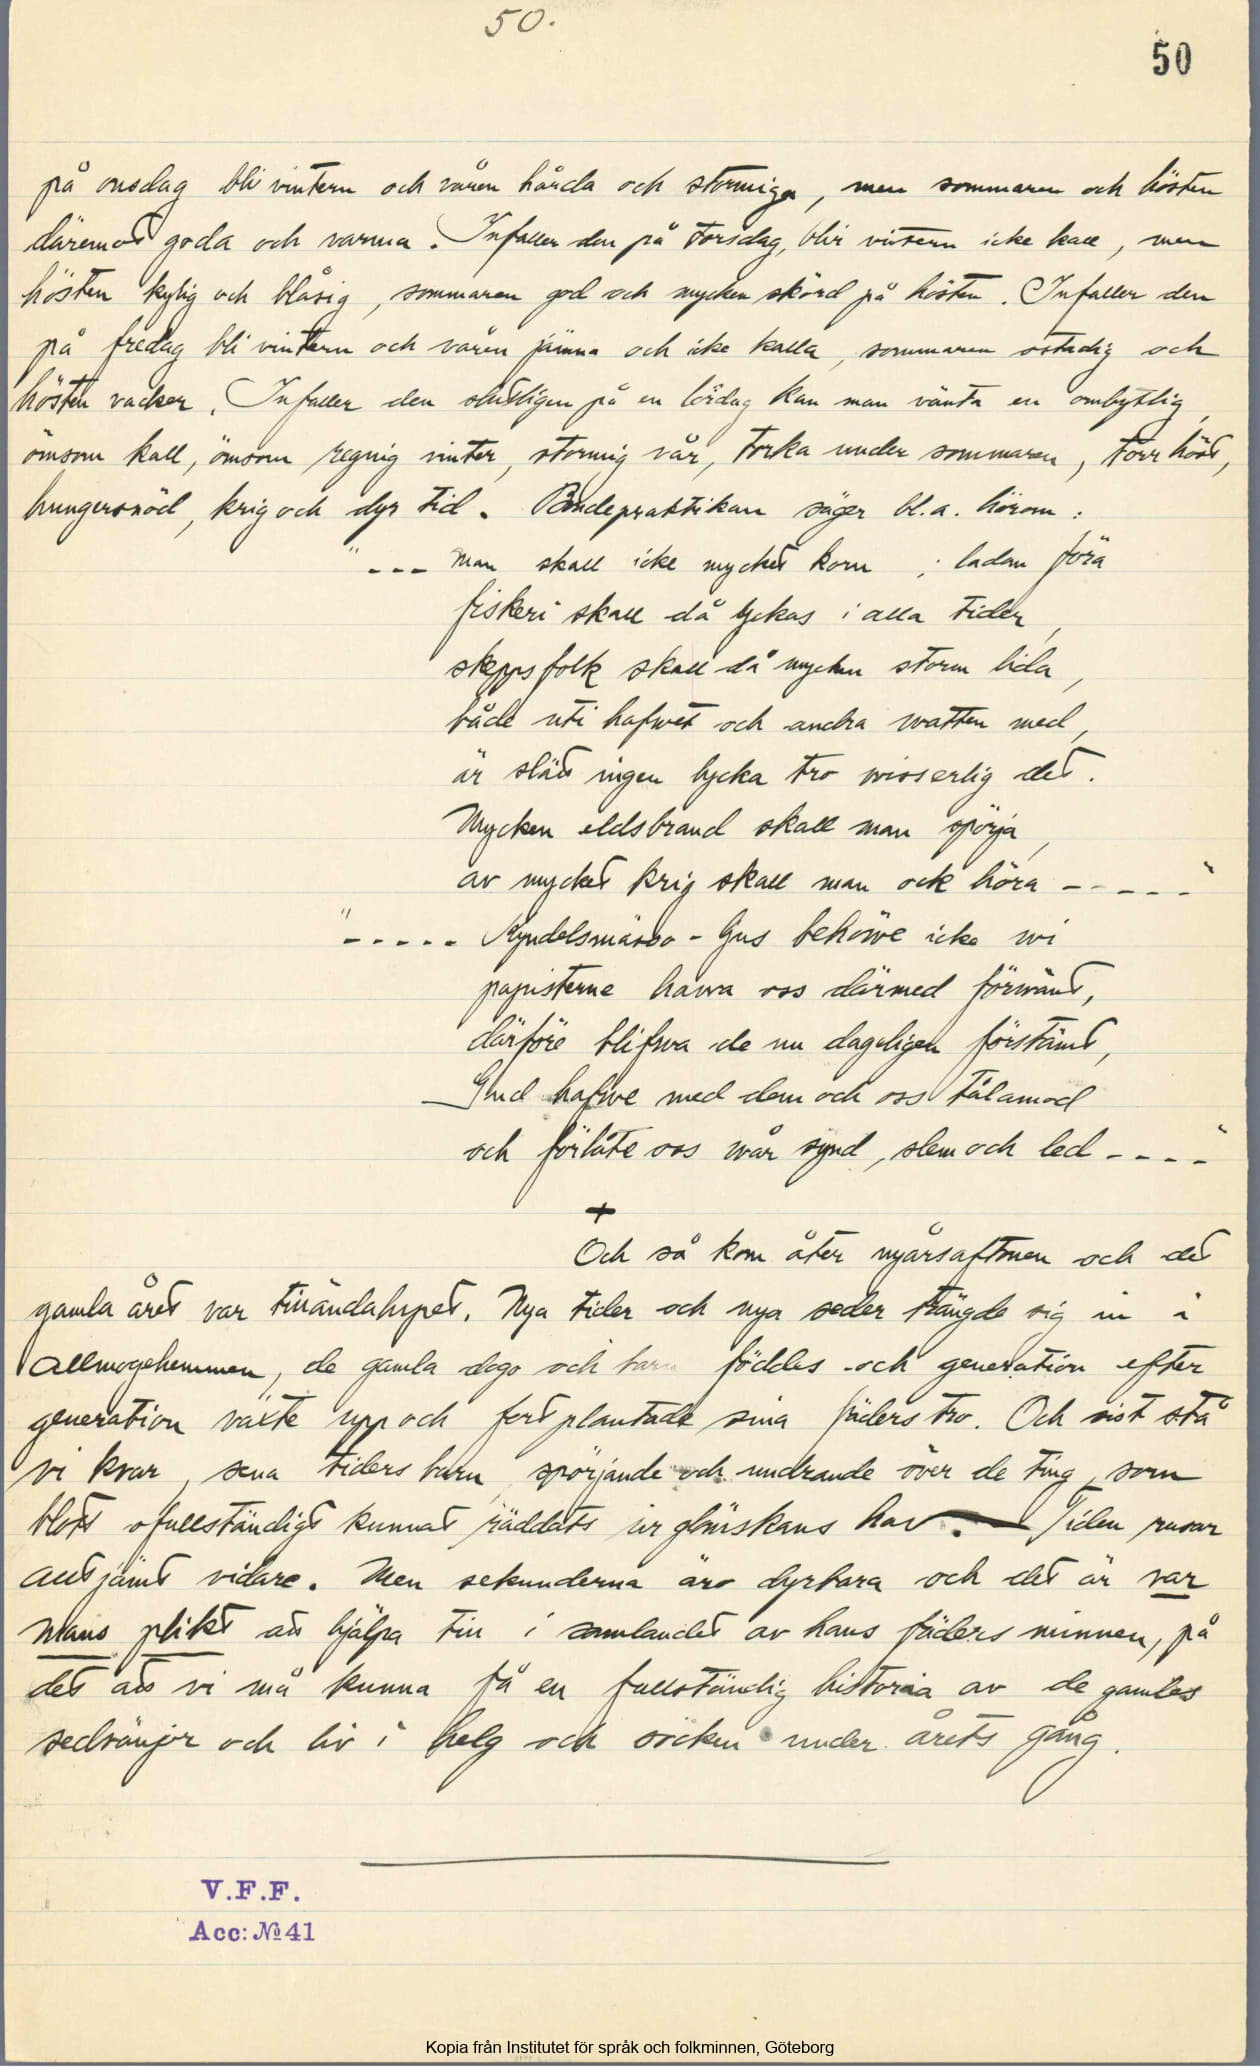 50.
50
på onsdag bli vintern och våren hårda och stormiga, men sommaren och hösten
däremot goda och varma. Infaller den på torsdag, blir vintern icke kall, men
hösten kylig och blåsig, sommaren god och mycken skörd på hösten. Infaller den
på fredag bli vintern och våren jämna och icke kalla, sommaren ostadig och
hösten vacker. Infaller den slutligen på en lördag kan man vänta en ombytlig,
ömsom kall, ömsom regnig vinter, stormig vår, torka under sommaren, torr höst,
hungersnöd, krig och dyr tid. Bondepraktikan säger bl.a. härom:
"--- man skall icke mycket korn i ladan föra
fiskeri skall då lyckas i alla tider,
skeppsfolk skall då mycken storm lida,
både uti hafwet och andra watten med,
är slätt ingen lycka tro wisserlig det.
Mycken eldsbrand skall man spörja,
av mycket krig skall man ock höra -----"
"----- Kyndelsmässo-ljus behöwe icke wi
papisterne hawa oss därmed förwänt,
därföre blifwa de nu dageligen förstämt,
Gud hafwe med dem och oss tålamod
och förlåte oss wår synd, slem och led ----"
+
Och så kom åter nyårsaftonen och det
gamla året var tilländalupet. Nya tider och nya seder trängde sig in i
allmogehemmen, de gamla dogo och barn föddes och generation efter
generation växte upp och fortplantade sina fäders tro. Och sist stå
vi kvar, sena tiders barn, spörjande och undrande över de ting, som
blott ofullständigt kunnat räddats ur glömskans hav. — Tiden rusar
alltjämt vidare. Men sekunderna äro dyrbara och det är var
mans plikt att hjälpa till i samlandet av hans fäders minnen, på
det att vi må kunna få en fullständig historia av de gamles
sedvänjor och liv i helg och söcken under årets gång.
V.F.F.
Acc: № 41
Kopia från Institutet för språk och folkminnen, Göteborg